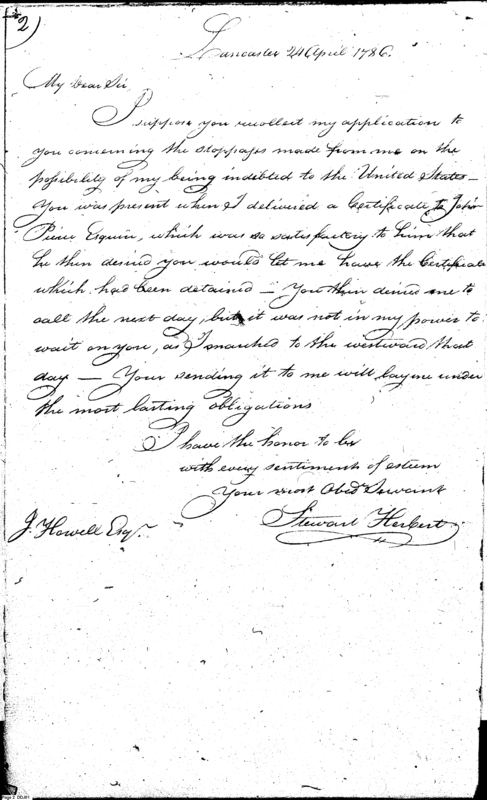 2)
Lancaster 24 April 1786.
My Dear Sir,
I suppose you recollect my application to
you concerning the stoppages made from me on the
possibility of my being indebted to the United States —
You was present when I delivered a Certificate to John
Pierce Esquire, which was so satisfactory to him that
he then desired you would let me have the Certificate
which had been detained — You then desired me to
call the next day, but it was not in my power to
wait on you, as I marched to the westward that
day — Your sending it to me will lay me under
the most lasting obligations
I have the honor to be
with every sentiment of esteem
Your most Obedt Servant
Stewart Herbert
J. Howell Esqr.